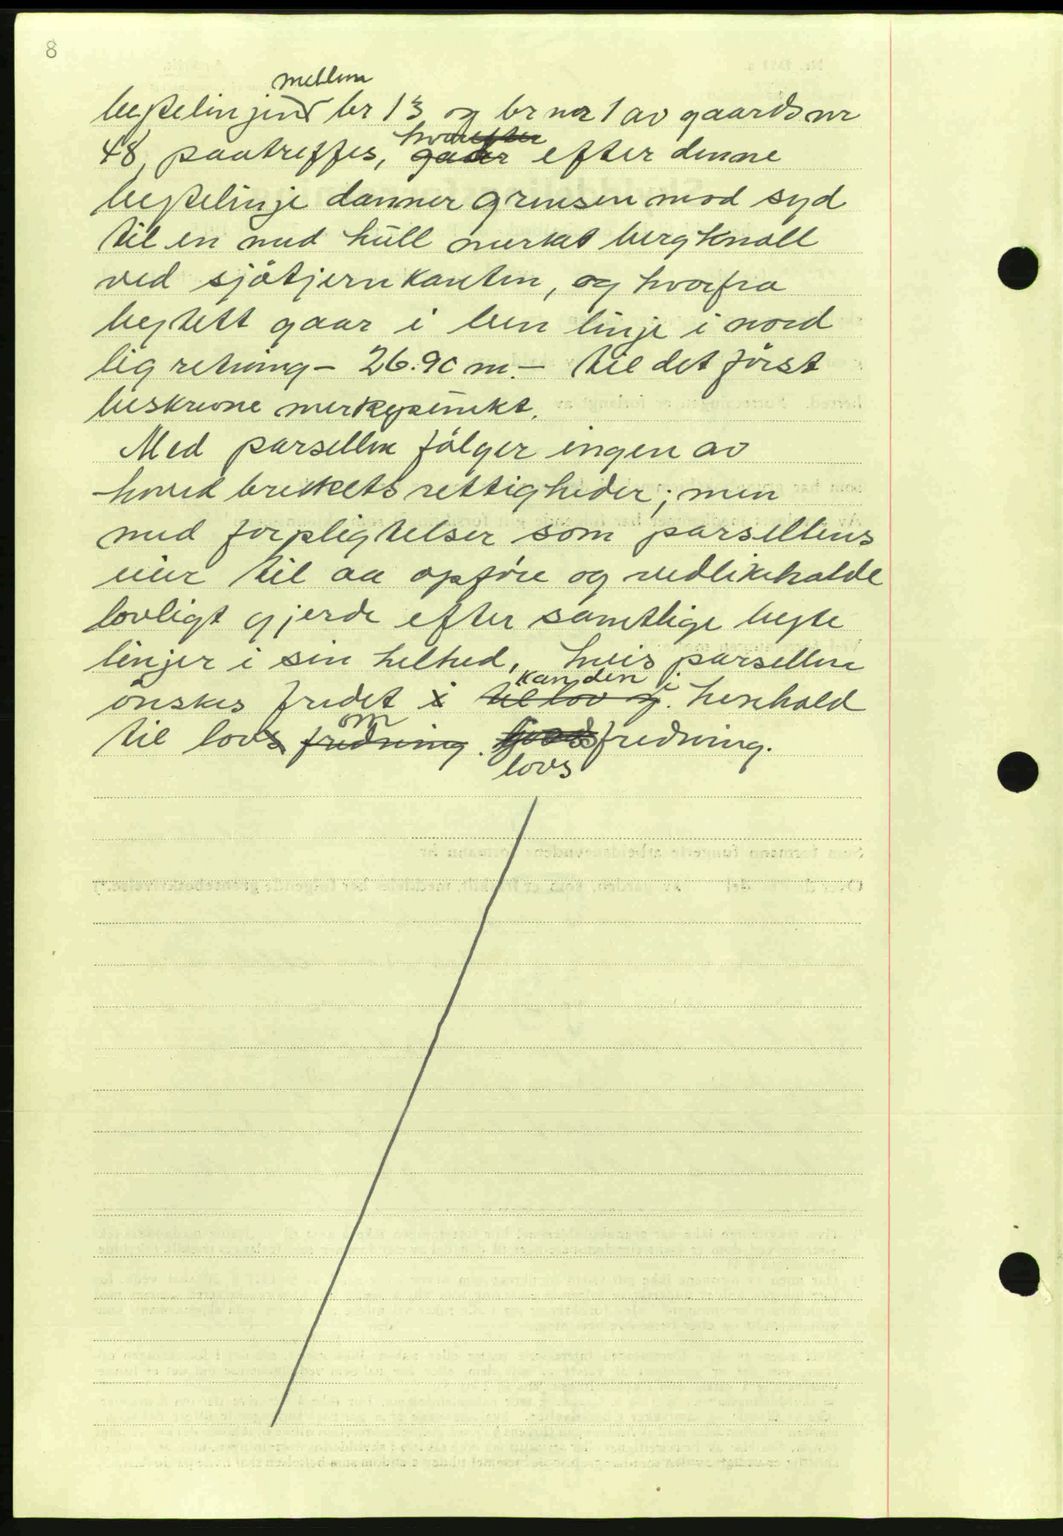 8
mellem
bytelinjen br 13 og br nr 1 av gaards nr
hvorefter
48, paatreffes, gaar efter denne
bytelinje danner grensen mod syd
til en med hull merket bergknall
ved sjötjernkanten, og hvorfra
bytett gaar i lein linje i nord
lig retning - 26.90 m. - til det först
beskrevne merkepunkt.
Med parsellen fölger ingen av
hovedbrukets rettigheder; men
med forpligtelser som parsellens
eier til aa opföre og vedlikeholde
lovligt gjerde efter samtlige byte
linjer i sin helhed, hvis parsellen
kan den i
önskes fredet i til lov og. henhold
om
til lovs fredning. fredning.
lovs